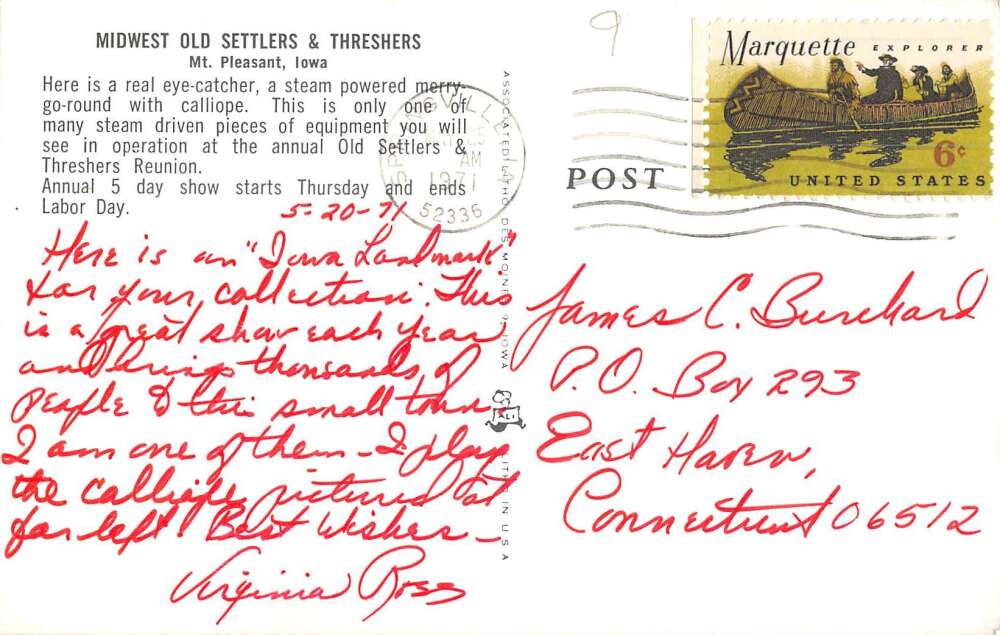 MIDWEST OLD SETTLERS & THRESHERS
Mt. Pleasant, Iowa
Here is a real eye-catcher, a steam powered merry-
go-round with calliope. This is only one of
many steam driven pieces of equipment you will
see in operation at the annual Old Settlers &
Threshers Reunion.
Annual 5 day show starts Thursday and ends
Labor Day.
5-20-71
Here is an "Iowa Landmark"
for your collection. This
is a great show each year
and brings thousands of
people to this small town.
I am one of them - I play
the calliope pictured at
far left! Best Wishes -
Virginia Ross
ASSOCIATED LITHO, DES MOINES, IOWA
LITHO IN U.S.A
9
AM
1971
52336
POST
Marquette EXPLORER
6¢
UNITED STATES
James C. Burchard
P.O. Box 293
East Haven,
Connecticut 06512